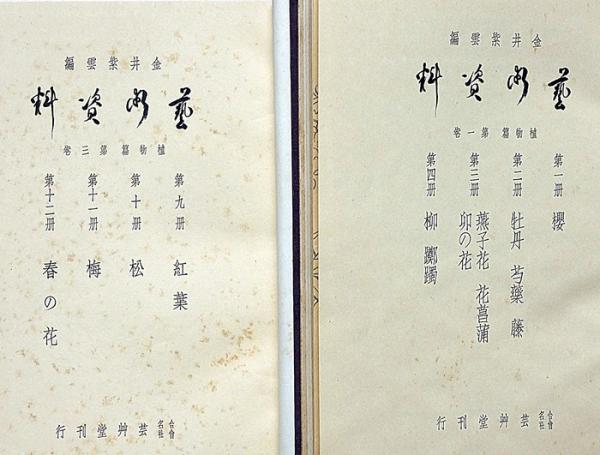 金井紫雲編
藝術資料
植物篇第三卷
第九册 紅葉
第十册 松
第十一册 梅
第十二册 春の花
合名會社 芸艸堂刊行
金井紫雲編
藝術資料
植物篇第一卷
第一册 櫻
第二册 牡丹 芍藥 藤
第三册 燕子花 花菖蒲 卯の花
第四册 柳 躑躅
合名會社 芸艸堂刊行